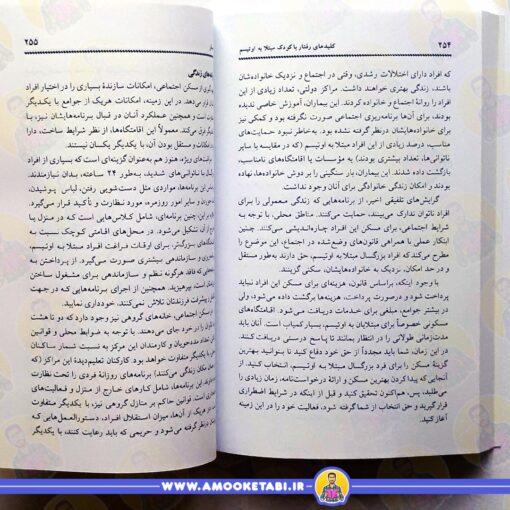 ۲۵۴
کلیدهای رفتار با کودک مبتلا به اوتیسم
که افراد دارای اختلالات رشدی، وقتی در اجتماع و نزدیک خانواده‌شان
باشند، زندگی بهتری خواهند داشت. مراکز دولتی، تعداد زیادی از این
افراد را روانهٔ اجتماع و خانواده کردند. این بیماران، آموزش خاصی ندیده
بودند، برای آن‌ها برنامه‌ریزی اجتماعی صورت نگرفته بود و کمکی نیز
برای خانواده‌هایشان درنظر گرفته نشده بود. به‌خاطر نبود حمایت‌های
مناسب، درصد زیادی از این افراد مبتلا به اوتیسم (که در مقایسه با سایر
ناتوانی‌ها، تعداد بیشتری بودند) به مؤسسات یا اقامتگاه‌های نامناسب،
بازگشت داده شدند. این بیماران، بار سنگینی را بردوش خانواده‌ها نهاده
و امکان زندگی خانوادگی برای آنان وجود نداشت.
گرایش‌های تلفیقی اخیر، از برنامه‌هایی که زندگی معمولی را برای
افراد ناتوان تدارک می‌بینند، حمایت می‌کنند. مناطق محلی، با توجه به
شرایط اجتماعی، برای مسکن این افراد چاره‌اندیشی می‌کنند. چنین
ابتکار عملی با همراهی قانون‌های وضع‌شده در اجتماع، این موضوع را
مطرح می‌کند که افراد بزرگسال مبتلا به اوتیسم، حق دارند به‌طور مستقل
و در حد امکان، نزدیک به خانواده‌هایشان، سکنی گزینند.
با وجود اینکه، براساس قانون، هزینه‌ای برای مسکن این افراد نباید
پرداخت شود و درصورت پرداخت، هزینه‌ها برگشت داده می‌شود، ولی
در بیشتر جوامع، مبلغی برای خدمات دریافت می‌شود. اقامتگاه‌های
مسکونی خصوصاً برای مبتلایان به اوتیسم، بسیار کمیاب است. آنان باید
مدت‌زمانی طولانی را در انتظار بمانند تا پاسخ درستی دریافت کنند.
در این زمان، شما باید مجدداً از حق خود دفاع کنید تا بتوانید بهترین
گزینهٔ مسکن را برای فرد بزرگسال مبتلا به اوتیسم، انتخاب کنید. از
آنجایی که پیدا کردن بهترین مسکن و ارائهٔ درخواست‌نامه، زمان زیادی را
می‌طلبد، پس، هم‌اکنون تحقیق کنید و قبل از اینکه در شرایط اضطراری
قرار گیرید و حق انتخاب از شما گرفته شود، فعالیت خود را در این زمینه
آغاز کنید.
۲۵۵
زندگی
از مسکن اجتماعی، امکانات سازندهٔ بسیاری را در اختیار افراد
قرار می‌دهد. در این زمینه، امکانات هریک از جوامع با یکدیگر
و همچنین عملکرد آنان در قبال برنامه‌هایشان نیز، با
فرق می‌کند. معمولاً این اقامتگاه‌ها، از نظر شرایط ساخت، دارا
و مستقل بودن آن، با یکدیگر یکسان نیستند.
مراقبت‌های ویژه، هنوز هم به‌عنوان گزینه‌ای است که بسیاری از افراد
با ناتوانی‌های شدید، به‌طور ۲۴ ساعته، بدان نیازمندند.
این برنامه‌ها، مواردی مثل دست‌شویی رفتن، لباس پوشیدن،
و سایر امور روزمره، مورد نظارت و تأکید قرار می‌گیرد.
این، چنین برنامه‌ای، شامل کلاس‌هایی است که در منزل و یا
آن، تشکیل می‌شود. در محل‌های اقامتی کوچک نسبت به
بزرگ‌تر، برای اوقات فراغت افراد مبتلا به اوتیسم،
و سازماندهی بیشتری صورت می‌گیرد. از پرداختن به
که فاقد هرگونه نظم و سازماندهی برای مشغول ساختن
بپرهیزید. همچنین از اجرای برنامه‌هایی که در جهت
پیشرفت فرزندتان تلاش نمی‌کنند، خودداری نمایید.
مسکن، خانه‌های گروهی نیز وجود دارد که دو تا هشت
را در خود جای می‌دهند. با توجه به ضوابط محلی و قوانین
تعداد مددجویان و کارمندان این مرکز به نسبت شمار ساکنان
با یکدیگر متفاوت خواهد بود. کارکنان تعلیم‌دیدهٔ این مراکز (که
زندگی می‌کنند) برنامه‌های روزانهٔ فردی را تحت نظارت
این برنامه‌ها، شامل کارهای خارج از منزل و فعالیت‌های
است. قوانین حاکم بر منازل گروهی نیز، با یکدیگر متفاوت
هریک از آن‌ها، میزان استقلال افراد، دستورالعمل‌هایی که
درنظر گرفته می‌شود و حریمی که باید رعایت کنند، با یکدیگر
WWW.AMOOKETABI.IR